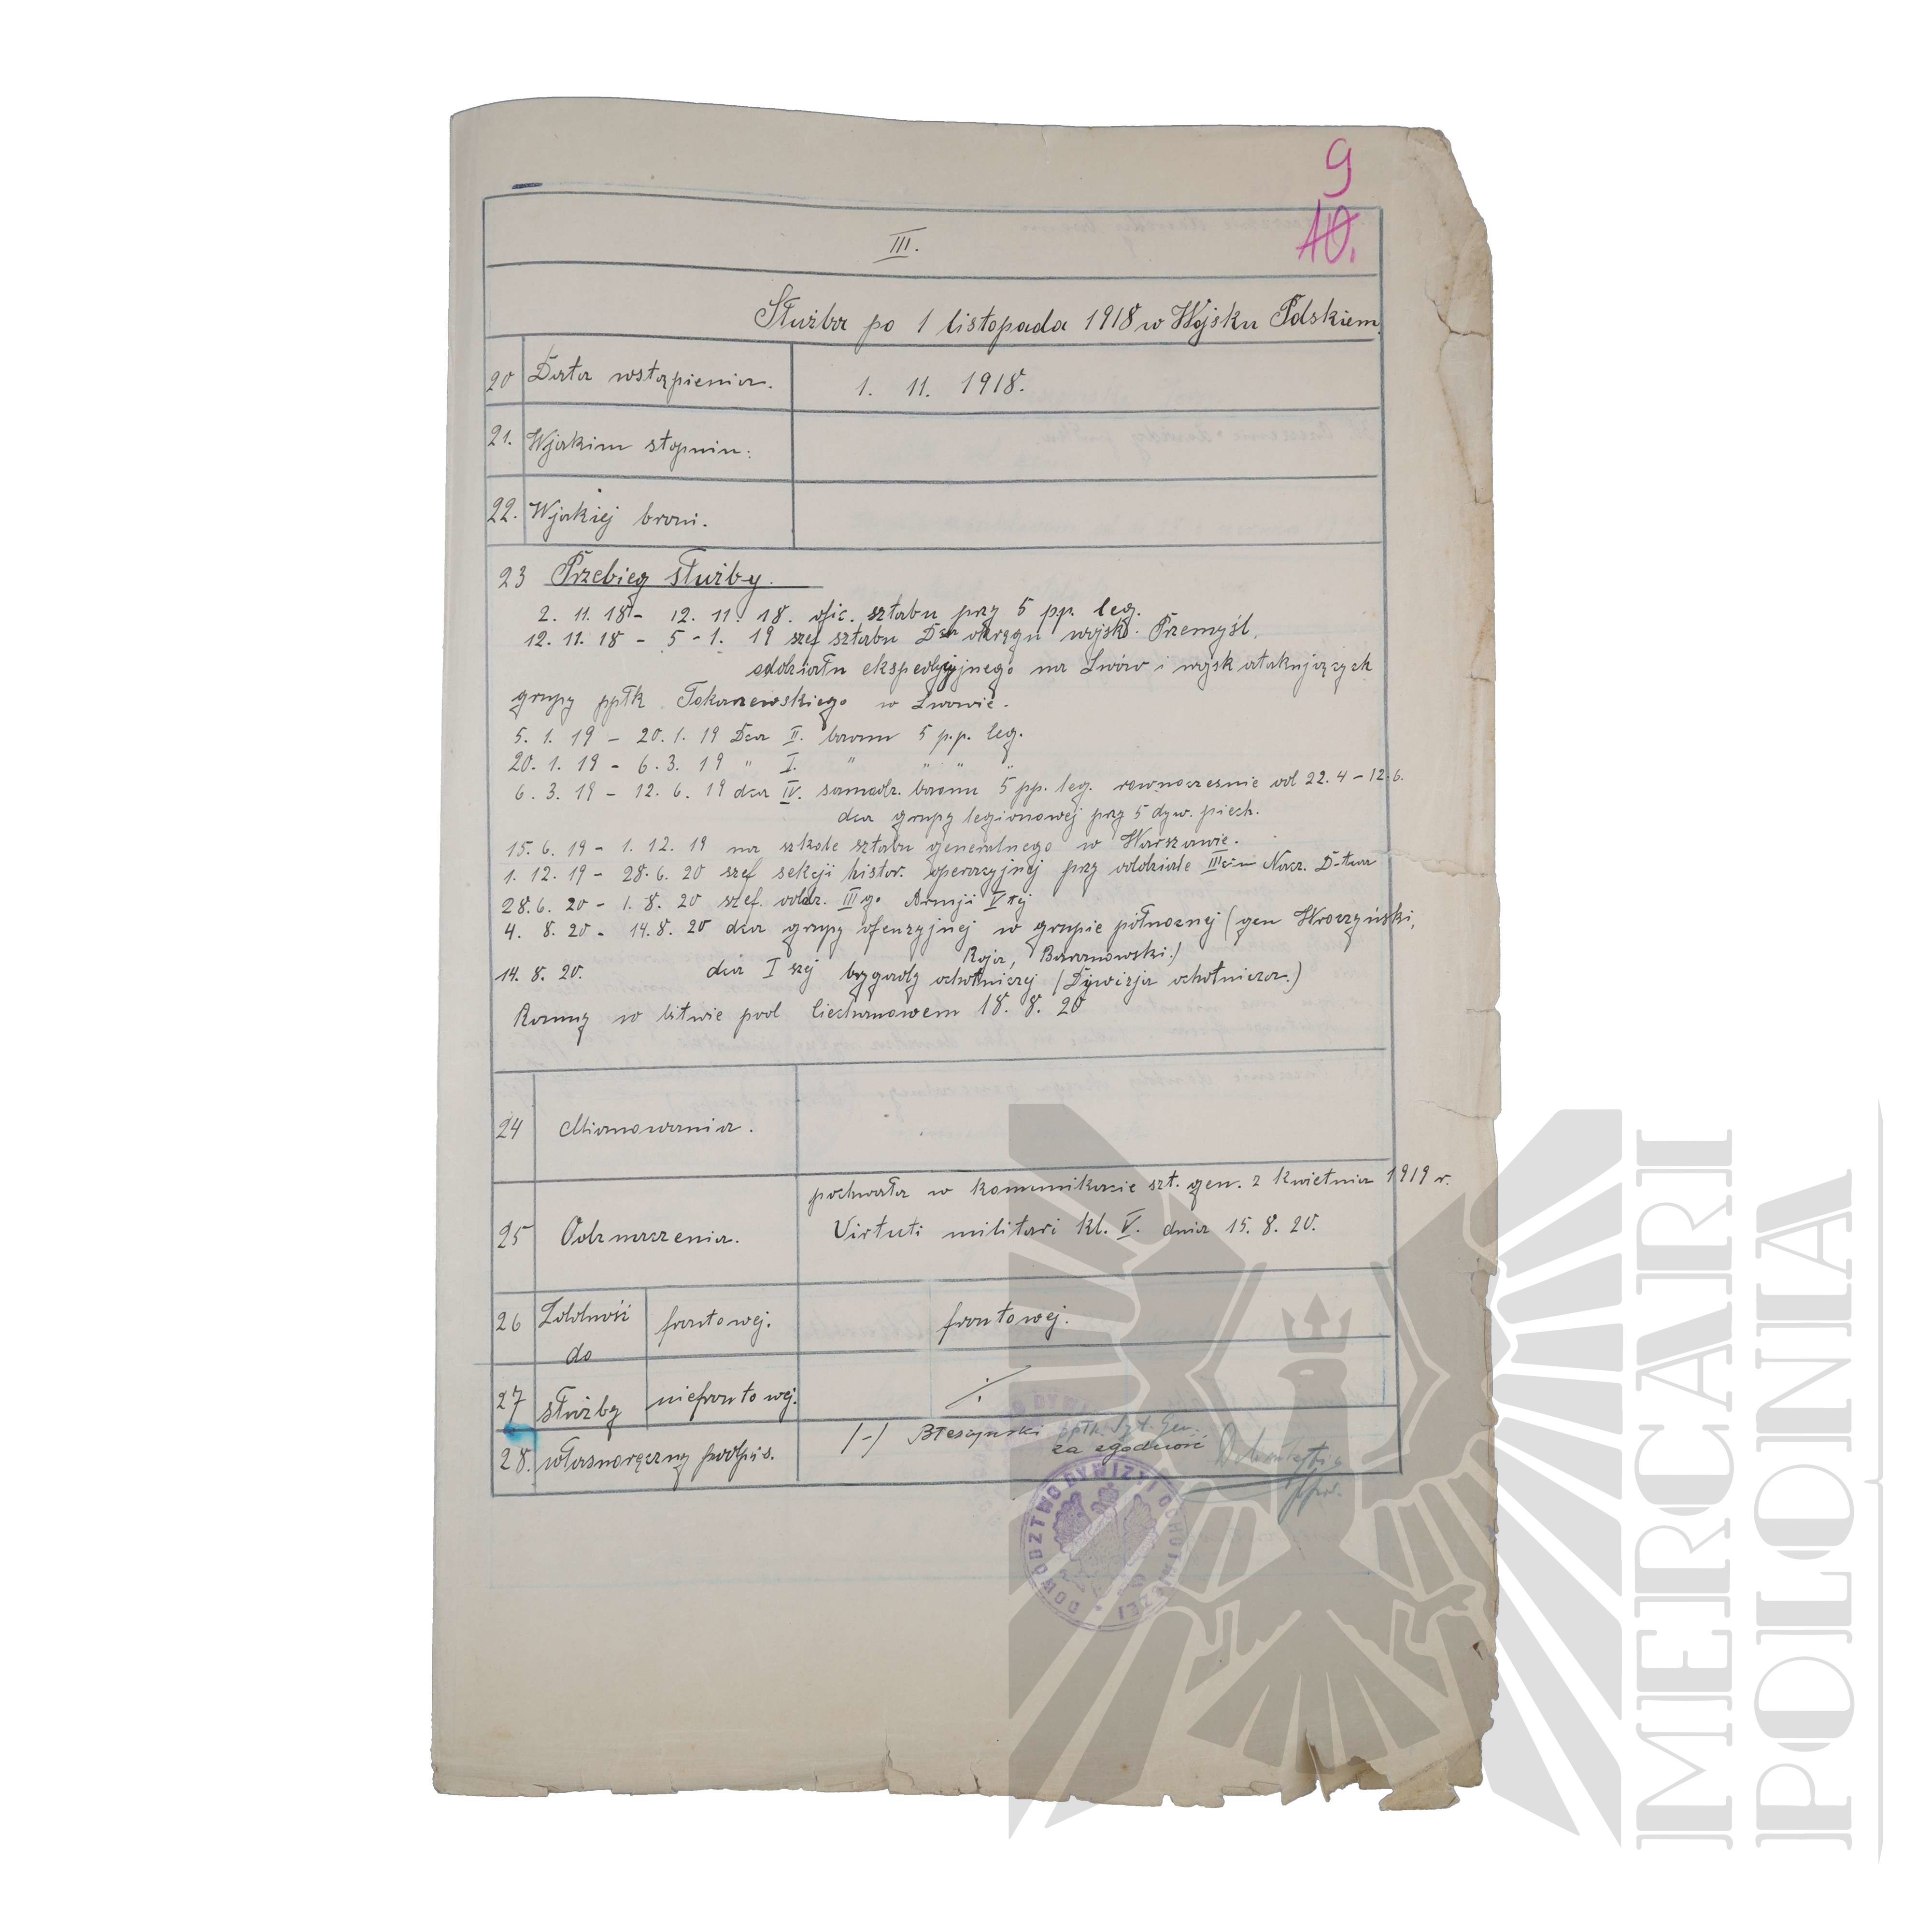 9
10.
III.
Służba po 1 listopada 1918 w Wojsku Polskiem.
20 Data wstąpienia. 1. 11. 1918.
21. Wjakim stopniu:
22. Wjakiej broni.
23 Przebieg służby.
2. 11. 18 - 12. 11. 18. ofic. sztabu przy 5 pp. leg.
12. 11. 18 - 5 - 1. 19 szef sztabu Dca okręgu wojsk. Przemyśl,
oddziału ekspedycyjnego na Lwów i wojsk atakujących
grupy ppłk Tokarzewskiego w Lwowie.
5. 1. 19 - 20. 1. 19 Dca II. baonu 5 p.p. leg.
20. 1. 19 - 6. 3. 19 " I. " " " "
6. 3. 19 - 12. 6. 19 dca IV. samodz. baonu 5 pp. leg. rownoczesnie od 22. 4 - 12. 6.
dca grupy legionowej przy 5 dyw. piech.
15. 6. 19 - 1. 12. 19 na szkole sztabu generalnego w Warszawie.
1. 12. 19 - 28. 6. 20 szef sekcji histor. operacyjnej przy oddziale III Nacz. D-twa
28. 6. 20 - 1. 8. 20 szef. oddz. III go Armji V tej
4. 8. 20 - 14. 8. 20 dca grupy ofenzyjnej w grupie północnej (gen Wroczyński,
Roja, Baranowski.)
14. 8. 20. dca I szej brygady ochotniczej (Dywizja ochotnicza.)
Ranny w bitwie pod Ciechanowem 18. 8. 20
24 Mianowania.
pochwała w komunikacie szt. gen. z kwietnia 1919 r.
25 Odznaczenia. Virtuti militari kl. V. dnia 15. 8. 20.
26 Zdolność frontowej. frontowej.
do
27 służby niefrontowej.
28. własnoręczny podpis. /-/ Błeszyński ppłk. Szt. Gen.
za zgodność
ppor.
DOWÓDZTWO DYWIZYI OCHOTNICZEJ
MERCARI
POLONIA